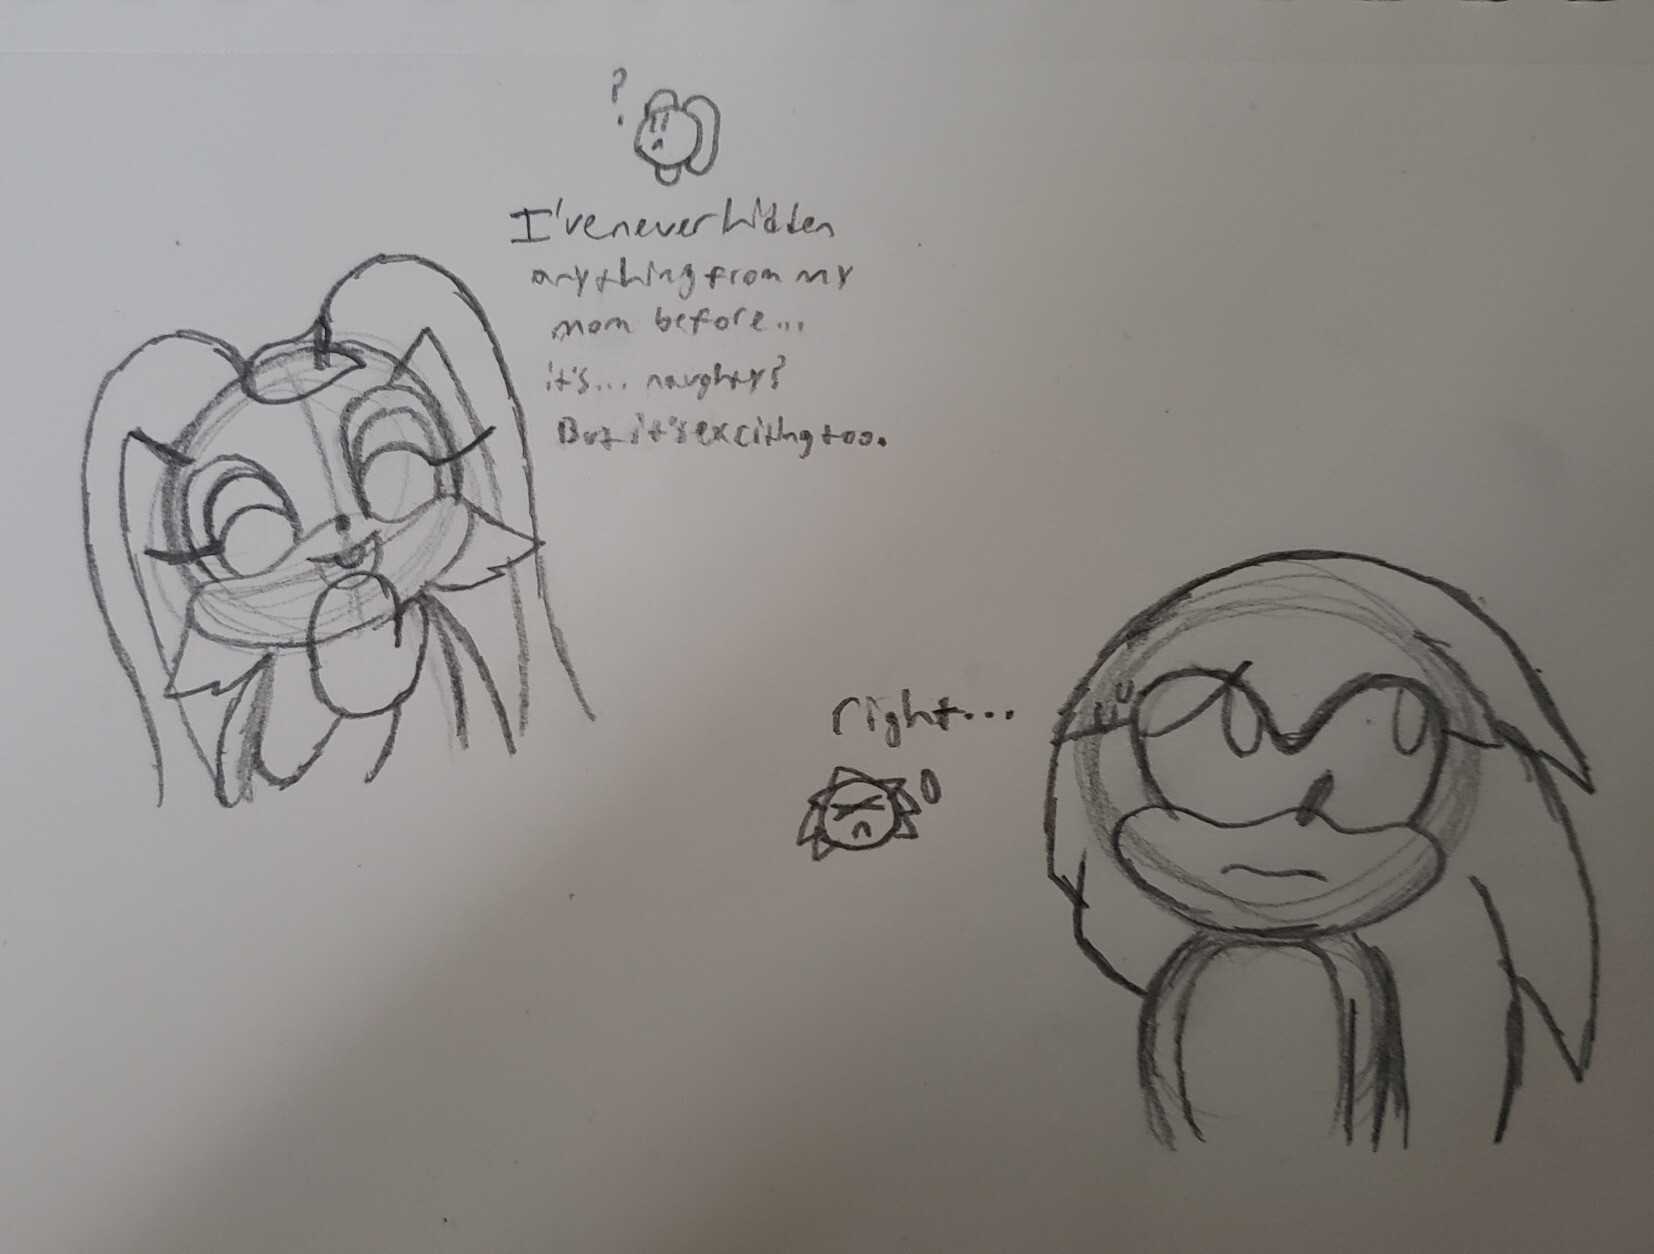 ?
I've never hidden
anything from my
mom before...
it's... naughty?
But it's exciting too.
right...